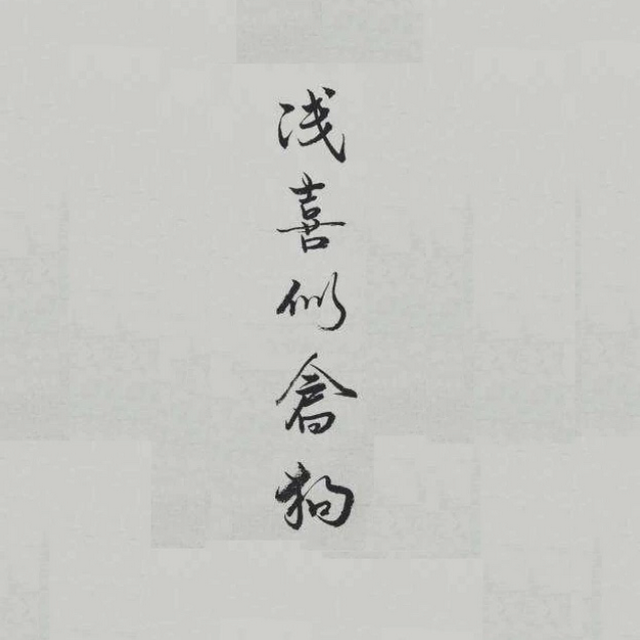 浅喜似倉狗